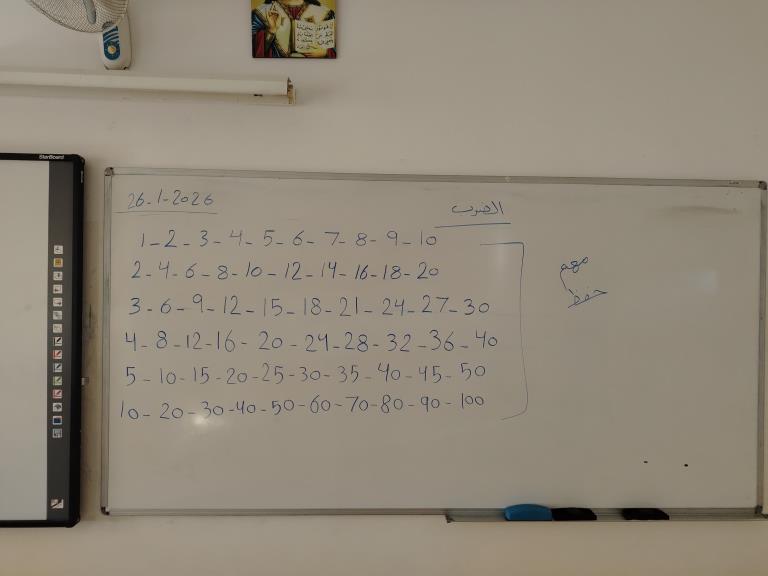 StarBoard
26-1-2026
الضرب
1-2-3-4-5-6-7-8-9-10
2-4-6-8-10-12-14-16-18-20
3-6-9-12-15-18-21-24-27-30
4-8-12-16-20-24-28-32-36-40
5-10-15-20-25-30-35-40-45-50
10-20-30-40-50-60-70-80-90-100
مهم
حفظ